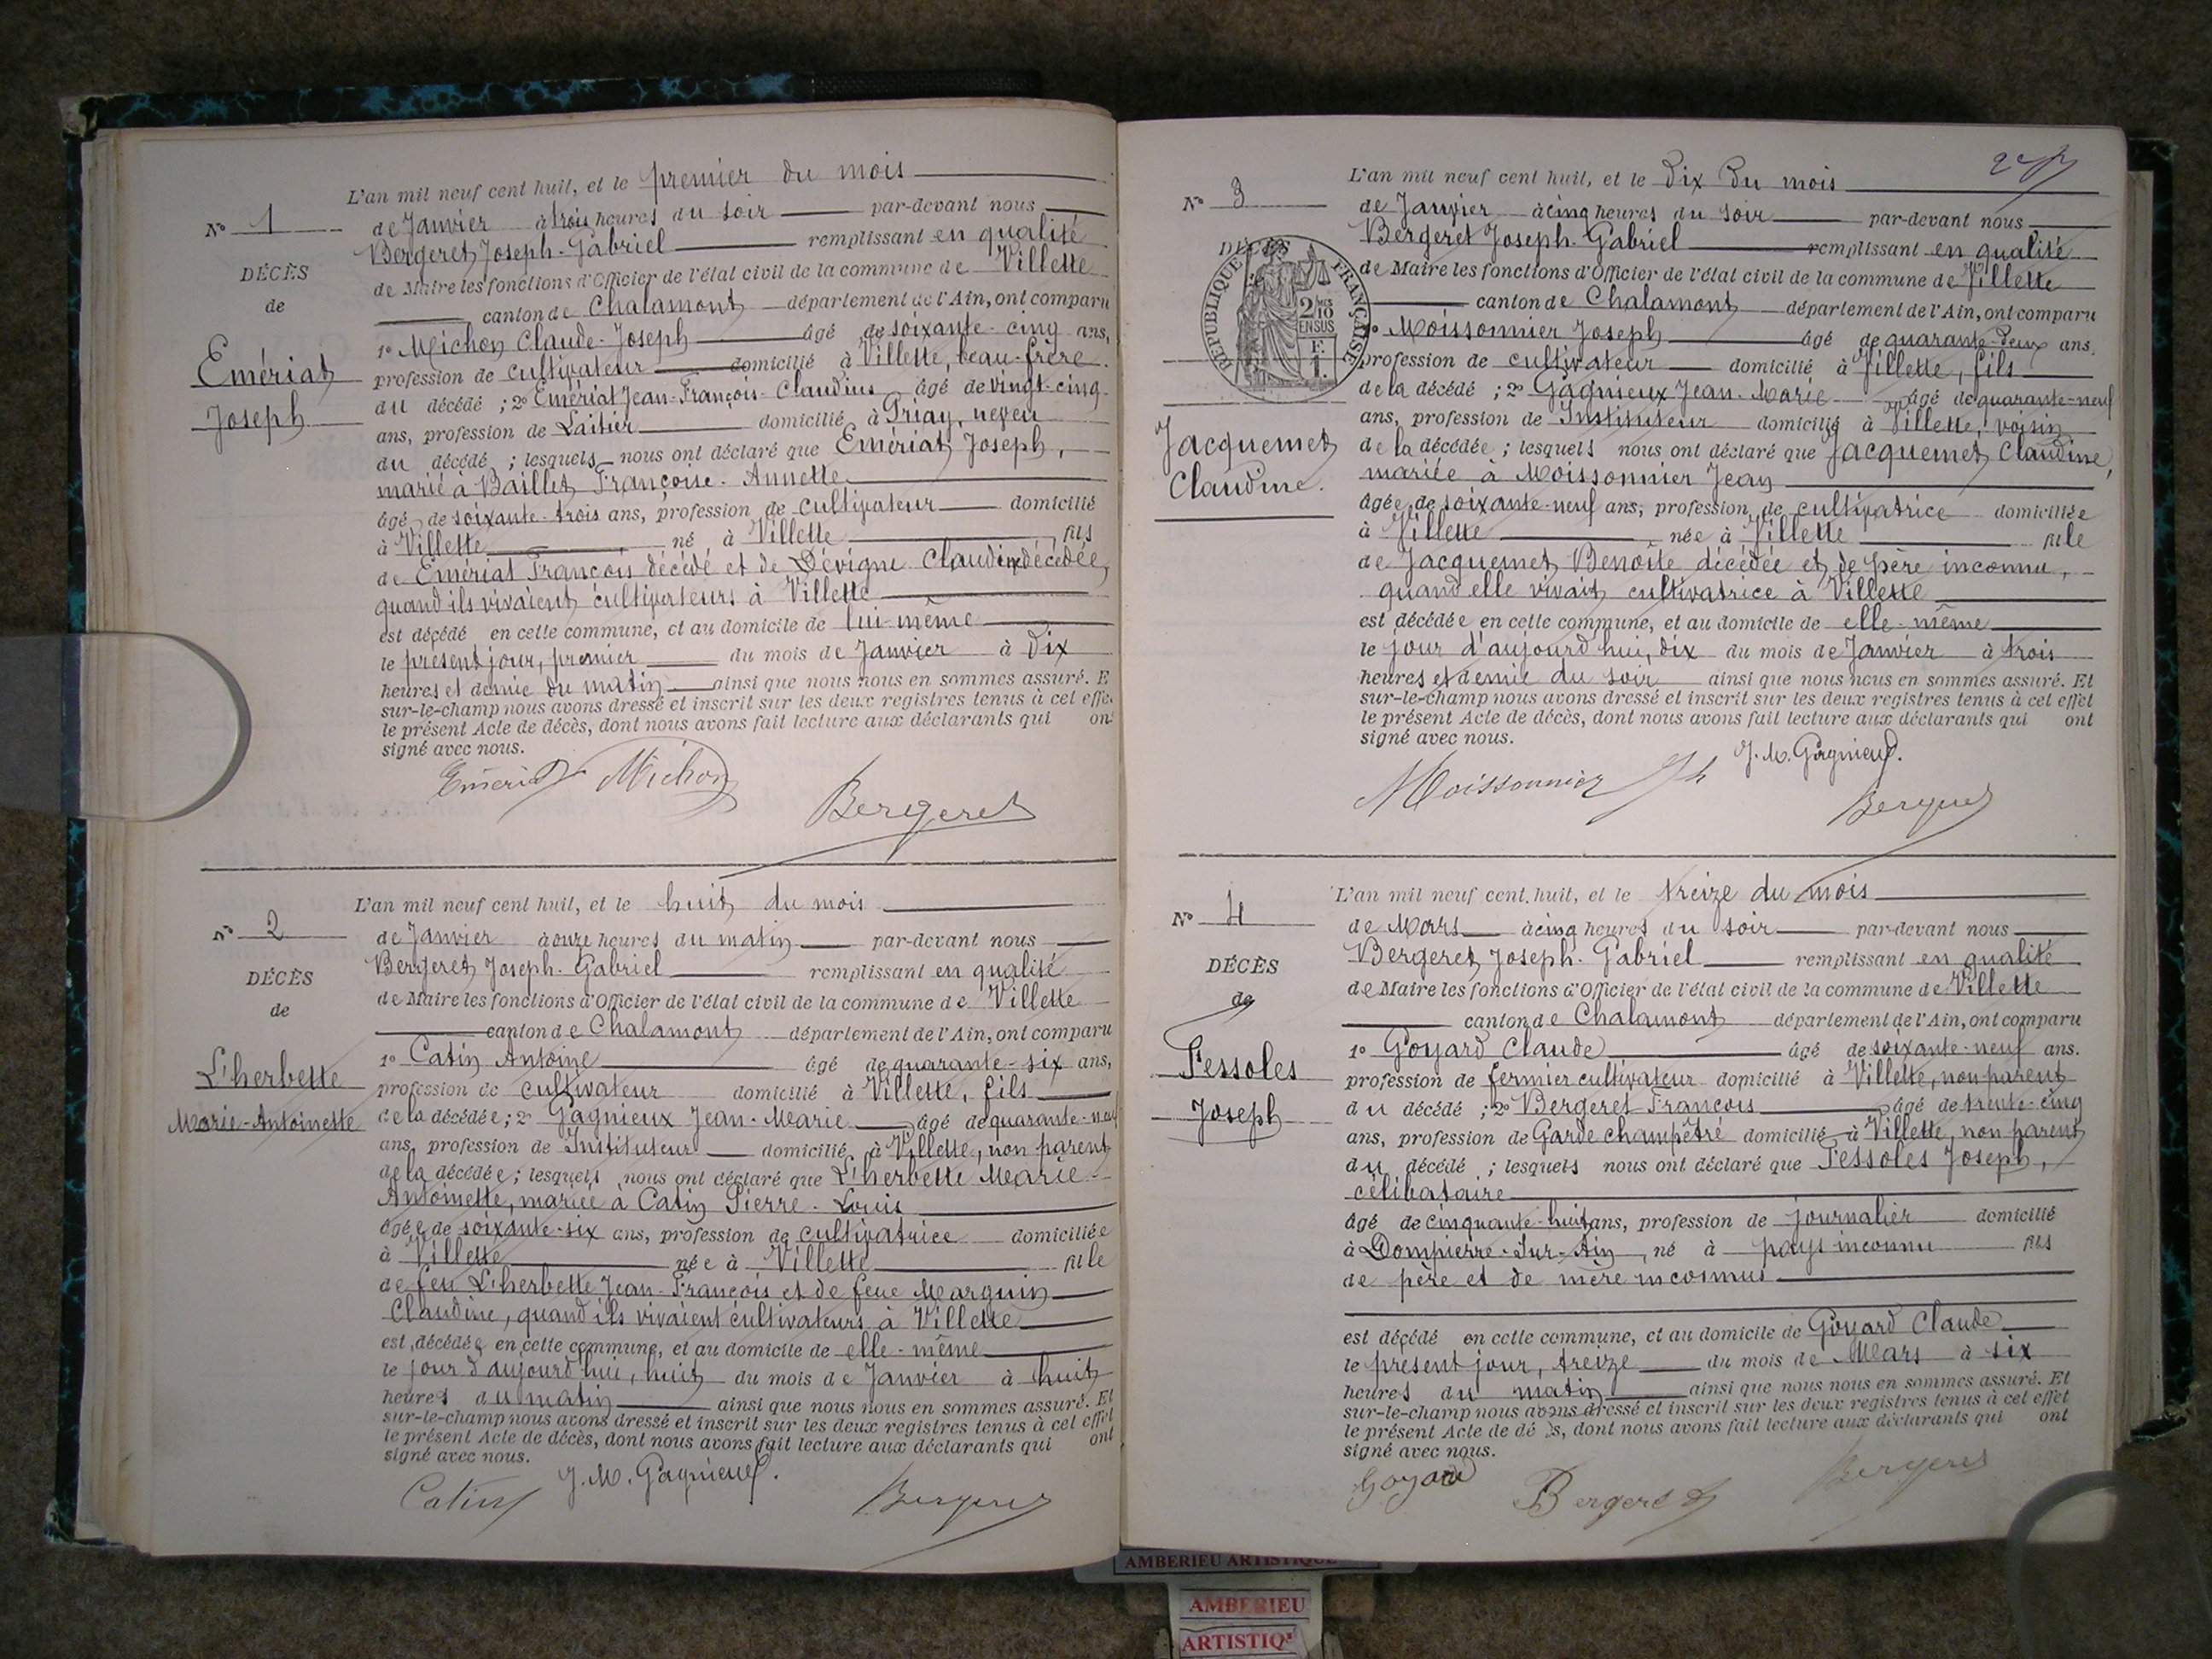 L'an mil neuf cent huit, et le premier du mois
N° 1
de Janvier à trois heures du soir par-devant nous
Bergeret Joseph-Gabriel remplissant en qualité
DÉCÈS
de Maire les fonctions d'Officier de l'état civil de la commune de Villette
de
canton de Chalamont département de l'Ain, ont comparu
1° Michon Claude-Joseph âgé de soixante-cinq ans,
Emériat
profession de cultivateur domicilié à Villette, beau-frère
Joseph
du décédé ; 2° Emériat Jean-François-Claudius âgé de vingt-cinq
ans, profession de Laitier domicilié à Priay, neveu
du décédé ; lesquels nous ont déclaré que Emériat Joseph,
marié à Baillet Françoise-Annette
âgé de soixante-trois ans, profession de cultivateur domicilié
à Villette né à Villette fils
de Emériat François décédé et de Dévigne Claudine décédée,
quand ils vivaient cultivateurs à Villette
est décédé en cette commune, et au domicile de lui-même
le présent jour, premier du mois de Janvier à dix
heures et demie du matin ainsi que nous nous en sommes assuré. E
sur-le-champ nous avons dressé et inscrit sur les deux registres tenus à cet effe
le présent Acte de décès, dont nous avons fait lecture aux déclarants qui on
signé avec nous.
Emériat Michon
Bergeret
L'an mil neuf cent huit, et le huit du mois
N° 2
de Janvier à onze heures du matin par-devant nous
Bergeret Joseph-Gabriel remplissant en qualité
DÉCÈS
de Maire les fonctions d'Officier de l'état civil de la commune de Villette
de
canton de Chalamont département de l'Ain, ont comparu
1° Catin Antoine âgé de quarante-six ans,
L'herbette
profession de cultivateur domicilié à Villette, fils
Marie-Antoinette
de la décédée ; 2° Gagnieux Jean-Marie âgé de quarante-neuf
ans, profession de Instituteur domicilié à Villette, non parent
de la décédée ; lesquels nous ont déclaré que L'herbette Marie-
Antoinette, mariée à Catin Pierre-Louis
âgée de soixante-six ans, profession de cultivatrice domiciliée
à Villette née à Villette fille
de feu L'herbette Jean-François et de feue Marguin
Claudine, quand ils vivaient cultivateurs à Villette
est décédée en cette commune, et au domicile de elle-même
le jour d'aujourd'hui, huit du mois de Janvier à huit
heures du matin ainsi que nous nous en sommes assuré. Et
sur-le-champ nous avons dressé et inscrit sur les deux registres tenus à cet effet
le présent Acte de décès, dont nous avons fait lecture aux déclarants qui ont
signé avec nous.
Catin J. M. Gagnieux.
Bergeret
L'an mil neuf cent huit, et le dix du mois
N° 3
de Janvier à cinq heures du soir par-devant nous
Bergeret Joseph-Gabriel remplissant en qualité
DÉCÈS
RÉPUBLIQUE FRANÇAISE
2/10
EN SUS
de Maire les fonctions d'Officier de l'état civil de la commune de Villette
canton de Chalamont département de l'Ain, ont comparu
1° Moissonnier Joseph âgé de quarante-deux ans,
profession de cultivateur domicilié à Villette, fils
de la décédé ; 2° Gagnieux Jean-Marie âgé de quarante-neuf
ans, profession de Instituteur domicilié à Villette, voisin
Jacquemet
Claudine.
de la décédée ; lesquels nous ont déclaré que Jacquemet Claudine,
mariée à Moissonnier Jean
âgée de soixante-neuf ans, profession de cultivatrice domiciliée
à Villette née à Villette fille
de Jacquemet Benoîte décédée et de père inconnu,
quand elle vivait cultivatrice à Villette
est décédée en cette commune, et au domicile de elle-même
le jour d'aujourd'hui, dix du mois de Janvier à trois
heures et demie du soir ainsi que nous nous en sommes assuré. Et
sur-le-champ nous avons dressé et inscrit sur les deux registres tenus à cet effet
le présent Acte de décès, dont nous avons fait lecture aux déclarants qui ont
signé avec nous.
J. M. Gagnieux.
Moissonnier Jh
Bergeret
L'an mil neuf cent huit, et le treize du mois
N° 4
de Mars à cinq heures du soir par-devant nous
Bergeret Joseph-Gabriel remplissant en qualité
DÉCÈS
de Maire les fonctions d'Officier de l'état civil de la commune de Villette
de
canton de Chalamont département de l'Ain, ont comparu
1° Goyard Claude âgé de soixante-neuf ans.
Pessoles
profession de fermier cultivateur domicilié à Villette, non parent
Joseph
du décédé ; 2° Bergeret François âgé de trente-cinq
ans, profession de Garde champêtre domicilié à Villette, non parent
du décédé ; lesquels nous ont déclaré que Pessoles Joseph,
célibataire
âgé de cinquante-huit ans, profession de journalier domicilié
à Dompierre-sur-Ain, né à pays inconnu fils
de père et de mère inconnus
est décédé en cette commune, et au domicile de Goyard Claude
le présent jour, treize du mois de Mars à six
heures du matin ainsi que nous nous en sommes assuré. Et
sur-le-champ nous avons dressé et inscrit sur les deux registres tenus à cet effet
le présent Acte de dé s, dont nous avons fait lecture aux déclarants qui ont
signé avec nous.
Goyard Bergeret Bergeret
AMBERIEU ARTISTIQUE
AMBERIEU
ARTISTIQ